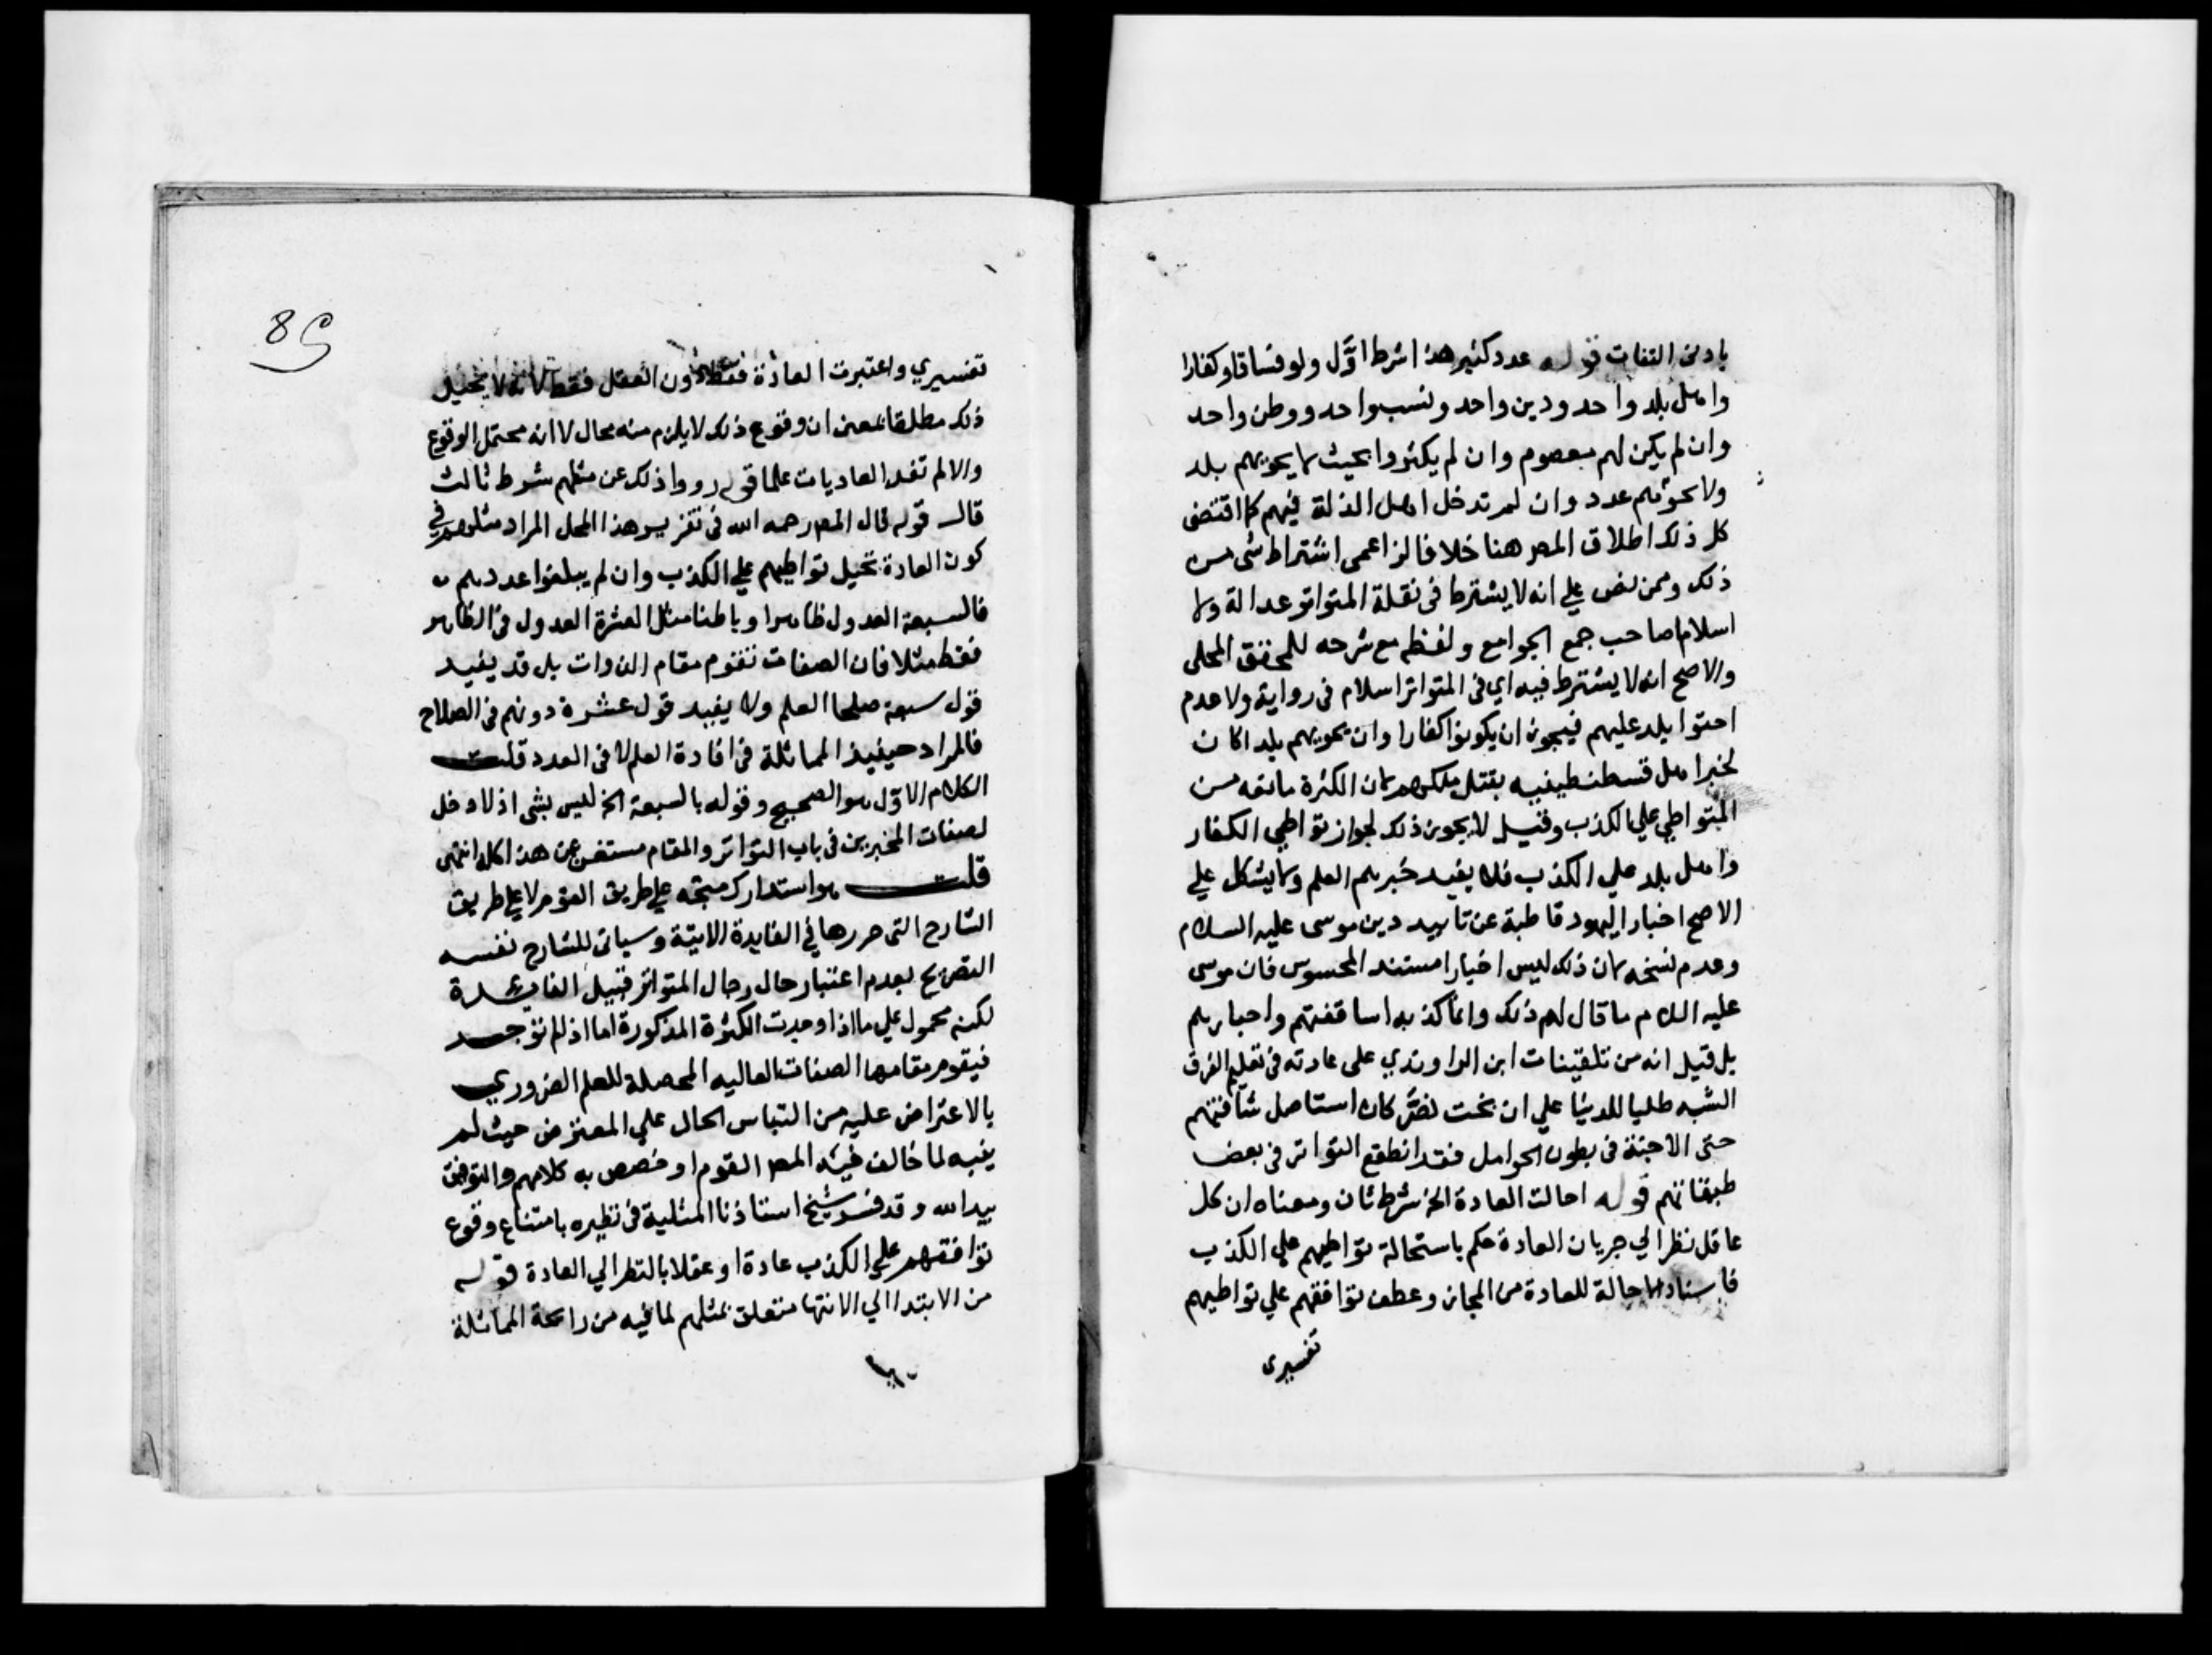 بادنى التفات قوله عدد كثير هذا شرط اوَّل ولو فساقا وكفارا
واهل بلد واحد ودين واحد ونسب واحد ووطن واحد
وان لم يكن لهم معصوم وان لم يكثروا بحيث لا يحويهم بلد
ولا يحويهم عدد وان لم تدخل اهل الذلة فيهم كما اقتضى
كل ذلك اطلاق المصر هنا خلافا لزاعمى اشتراط شى من
ذلك وممن نص على انه لا يشترط فى نقلة المتواتر عدالة ولا
اسلام صاحب جمع الجوامع ولفظه مع شرحه للمحقق المحلى
والاصح انه لا يشترط فيه اي فى المتواتر اسلام فى رواية ولا عدم
احتوا بلد عليهم فيجوز ان يكونوا كفارا وان يحويهم بلد كان
يخبر اهل قسطنطينيه بقتل ملكهم لان الكثرة مانعه من
التواطي على الكذب وقيل لا يجوز ذلك لجواز تواطي الكفار
واهل بلد على الكذب فلا يفيد خبرهم العلم ولا يشكل علي
الاصح اخبار اليهود قاطبة عن تابيد دين موسى عليه السلام
وعدم نسخه لان ذلك ليس اخبارا مستند المحسوس فان موسى
عليه السلام ما قال لهم ذلك وانما كذب به اساقفتهم واحبارهم
بل قيل انه من تلقينات ابن الراوندي على عادته فى تعليم الفرق
الشبه طلبا للدنيا علي ان بخت نصَّر كان استاصل شافتهم
حتى الاجنة فى بطون الحوامل فقد انطقع التواتر فى بعض
طبقاتهم قوله احالت العادة الخ شرط ثان ومعناه ان كل
عاقل نظر الي جريان العادة حكم باستحالة تواطيهم علي الكذب
فاسناد الاحالة للعادة من المجاز وعطف توافقهم علي تواطيهم
تفسيرى
تفسيري واعتبرت العادة فقط دون العقل فقط لانه لا يحيل
ذلك مطلقا بمعنى ان وقوع ذلك لا يلزم منه محال لا انه محتمل الوقوع
والا لم تفد العاديات علما قوله رووا ذلك عن مثلهم شرط ثالث
قال قوله قال المصر رحمه الله فى تقرير هذا المحل المراد مثلهم في
كون العادة تحيل تواطيهم علي الكذب وان لم يبلغوا عددهم
فالسبعة العدول ظاهرا وباطنا مثل العشرة العدول فى الظاهر
فقط مثلا فان الصفات تقوم مقام الذوات بل قد يفيد
قول سبعة صلحا العلم ولا يفيد قول عشرة دونهم فى الصلاح
فالمراد حينيذ المماثلة فى افادة العلم لا فى العدد قلت
الكلام الاوّل هو الصحيح وقوله بالسبعة الخ ليس بشى اذ لا دخل
لصفات المخبرين فى باب التواتر والمقام مستغن عن هذا كله انتهى
قلت هو استدارك متجه علي طريق القوم لا علي طريق
الشارح التى حررها في الفايدة الاتيّة وسياتى للشارح نفسه
التصريح بعدم اعتبار حال رجال المتواتر قبيل الفايدة
لكنه محمول علي ما اذا وجدت الكثرة المذكورة اما اذ لم توجد
فيقوم مقامها الصفات العاليه المحصلة للعلم الضروري
بالاعتراض عليه من التباس الحال علي المعترض حيث لم
ينبه لما خالف فيه المصر القوم او خصص به كلامهم والتوفيق
بيد الله وقد فسر شيخ استاذنا المثلية فى نظيره بامتناع وقوع
توافقهم علي الكذب عادة او عقلا بالنظر الي العادة قوله
من الابتدا الي الانتها متعلق بمثلهم لما فيه من رايحة المماثلة